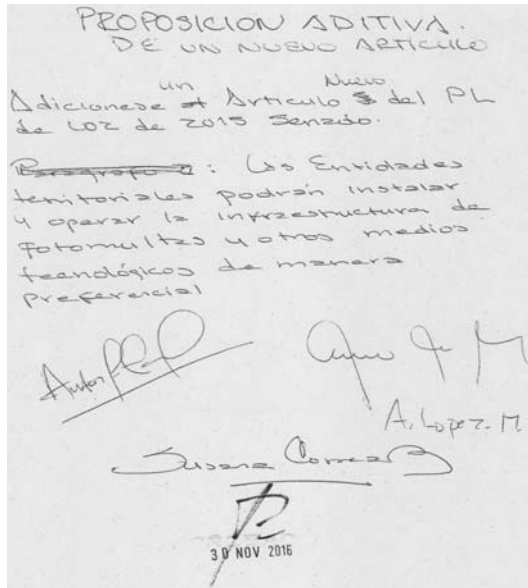 PROPOSICION ADITIVA.
DE UN NUEVO ARTICULO
Adicionese un Articulo Nuevo del PL
de 102 de 2015 Senado.
Paragrafo 2: Las Entidades
territoriales podrán instalar
y operar la infraestructura de
fotomultas y otros medios
tecnológicos de manera
preferencial
A. Lopez. M
Susana Correa B
30 NOV 2016